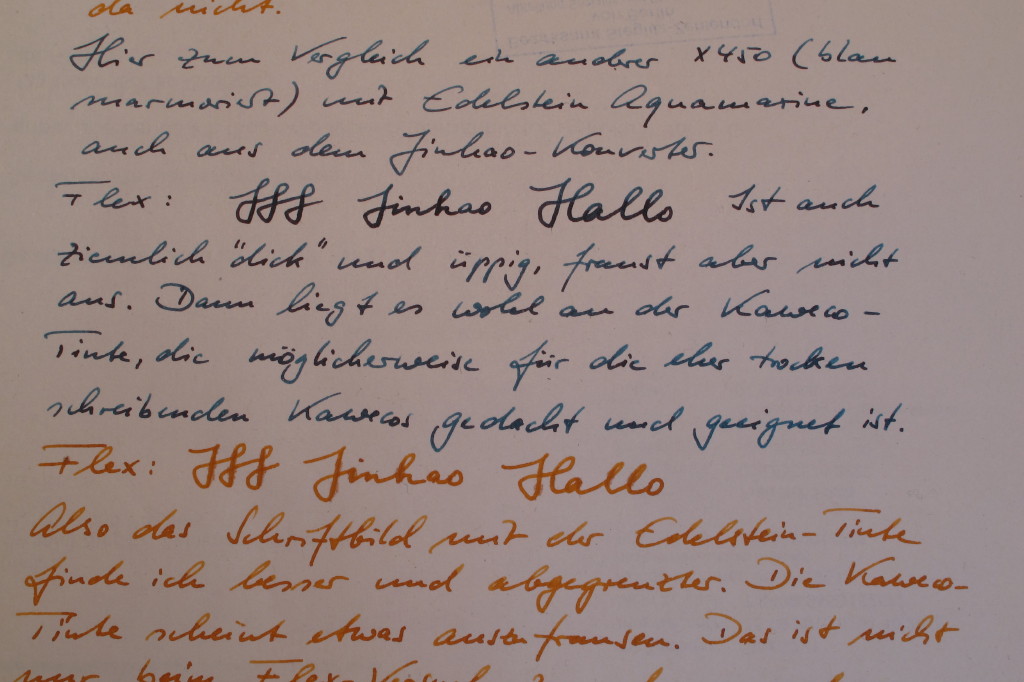 da nicht.
Hier zum Vergleich ein anderer X450 (blau
marmoriert) mit Edelstein Aquamarine,
auch aus dem Jinhao-Konverter.
Flex: JJJ Jinhao Hallo Ist auch
ziemlich "dick" und üppig, franst aber nicht
aus. Dann liegt es wohl an der Kaweco-
Tinte, die möglicherweise für die eher trocken
schreibenden Kawecos gedacht und geeignet ist.
Flex: JJJ Jinhao Hallo
Also das Schriftbild mit der Edelstein-Tinte
finde ich besser und abgegrenzter. Die Kaweco-
Tinte scheint etwas auszufransen. Das ist nicht
nur beim Flex-Versuch